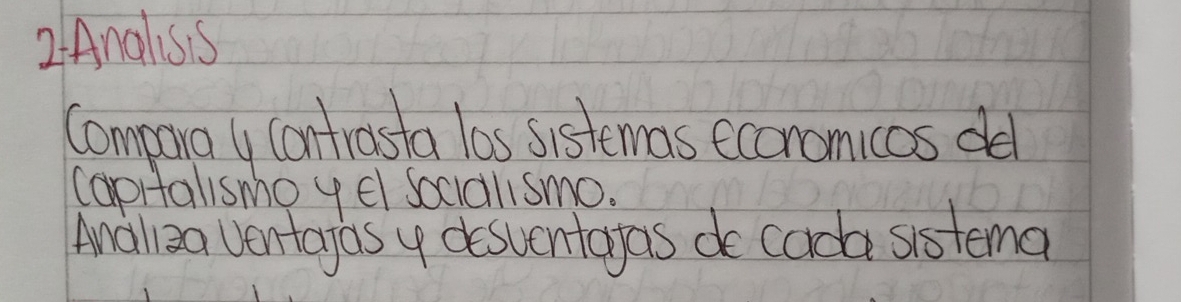 2-Analisis
Compara y contrasta los sistemas economicos del
capitalismo y el socialismo.
Analiza ventajas y desventajas de cada sistema